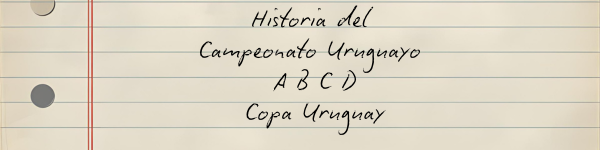 Historia del
Campeonato Uruguayo
A B C D
Copa Uruguay